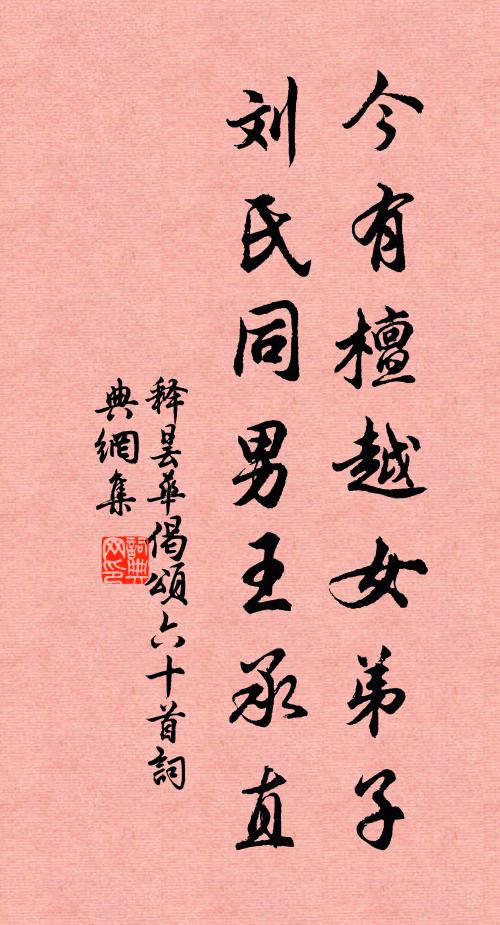 今有檀越女弟子
刘氏同男王承直
释昙华偈頌六十首詞
典網集
詞典
网印